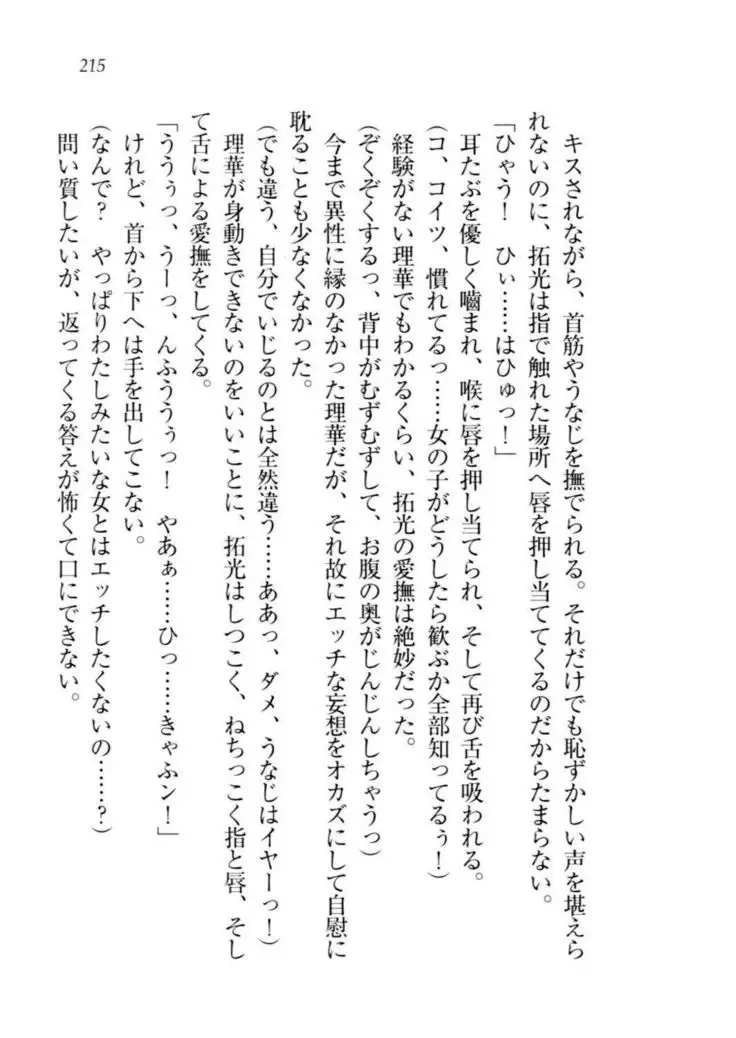 215
キスされながら、首筋やうなじを撫でられる。それだけでも恥ずかしい声を堪えら
れないのに、拓光は指で触れた場所へ唇を押し当ててくるのだからたまらない。
「ひゃう！　ひぃ……はひゅっ！」
耳たぶを優しく嚙まれ、喉に唇を押し当てられ、そして再び舌を吸われる。
(コ、コイツ、慣れてるっ……女の子がどうしたら歓ぶか全部知ってるぅ！)
経験がない理華でもわかるくらい、拓光の愛撫は絶妙だった。
(ぞくぞくするっ、背中がむずむずして、お腹の奥がじんじんしちゃうっ)
今まで異性に縁のなかった理華だが、それ故にエッチな妄想をオカズにして自慰に
耽ることも少なくなかった。
(でも違う、自分でいじるのとは全然違う……ああっ、ダメ、うなじはイヤーっ！)
理華が身動きできないのをいいことに、拓光はしつこく、ねちっこく指と唇、そし
て舌による愛撫をしてくる。
「ううぅっ、うーっ、んふううぅっ！　やあぁ……ひっ……きゃふン！」
けれど、首から下へは手を出してこない。
(なんで？　やっぱりわたしみたいな女とはエッチしたくないの……？)
問い質したいが、返ってくる答えが怖くて口にできない。